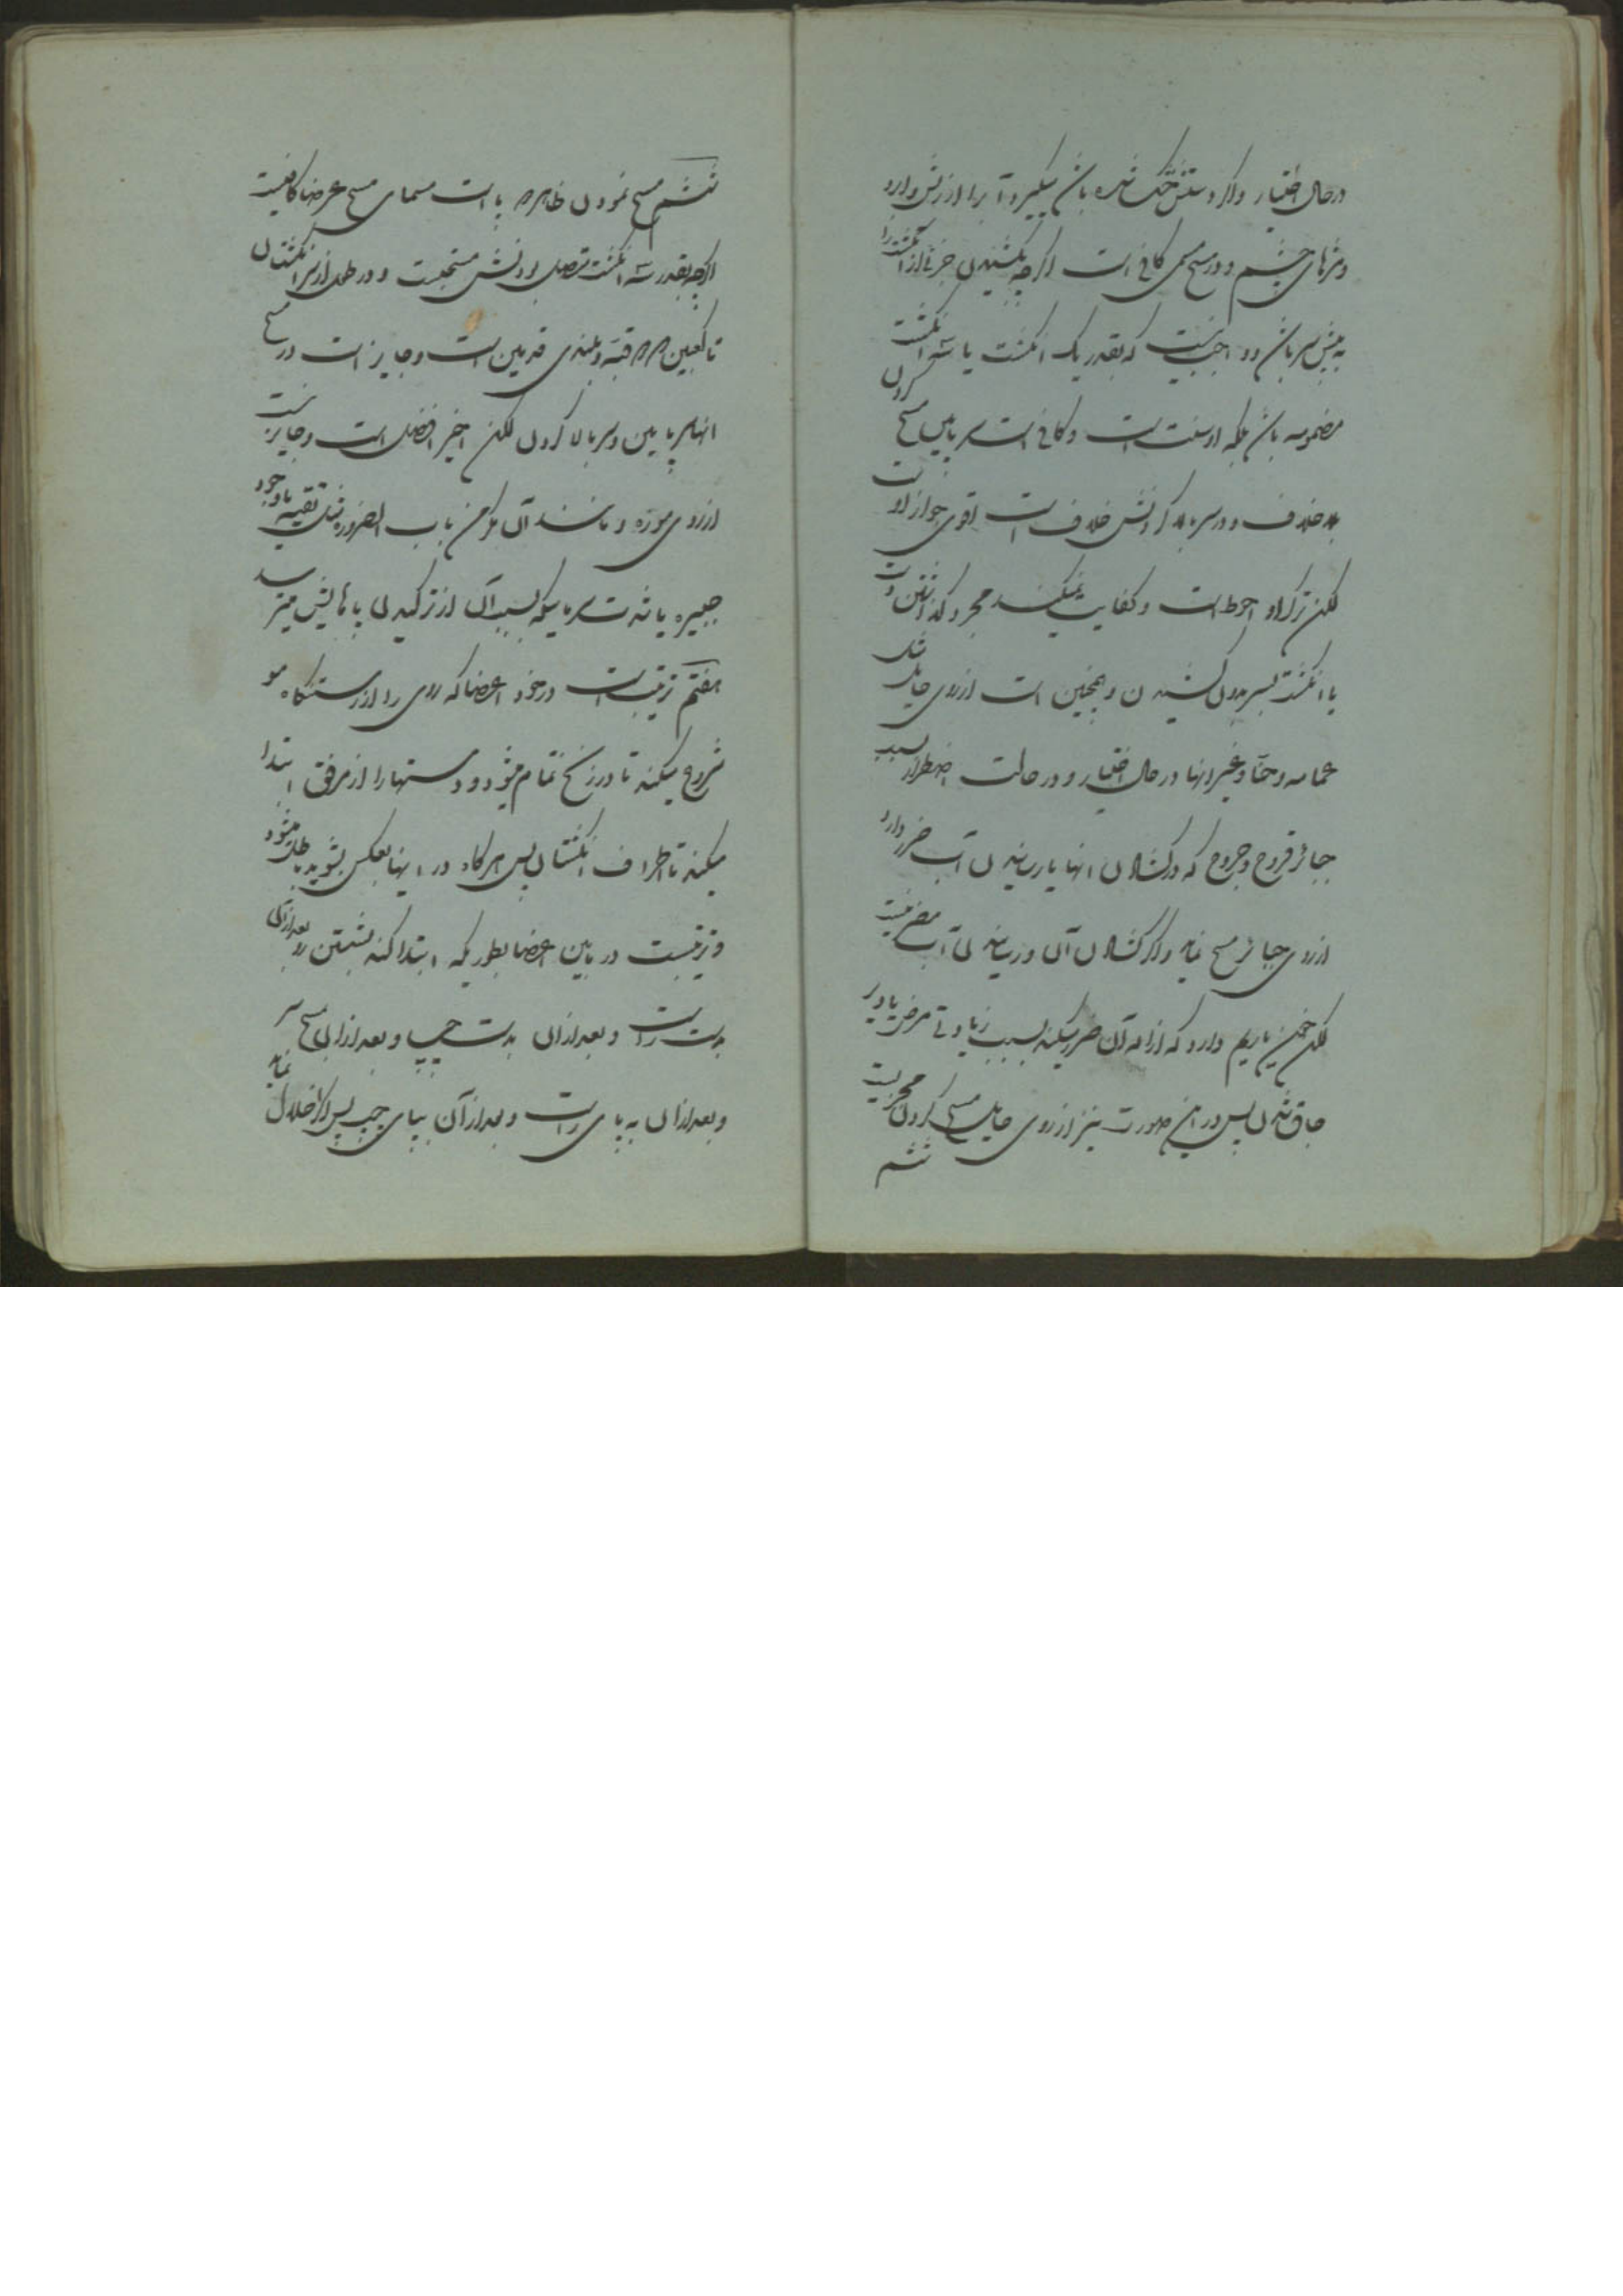 در حال اختیار و اگر دستش خشک شده باشد میگیرد آب را از ریش و ابرو
و مژهای چشم و در مسح مسمی کافی است اگرچه بکشیدن جزئی از انگشت را
به پیش سر باشد و واجب نیست که بقدر یک انگشت یا سه انگشت
مضمومه باشد بلکه او سنت است و کافی است سر پایین مسح کردن
بلا خلاف و در سر بالا کردنش خلاف است اقوی جواز اوست
لکن ترک او احوط است و کفایت نمیکند مجرد گذاشتن دست
یا انگشت بسر بدون کشیدن و همچنین است از روی حایل مثل
عمامه و حنا و غیر اینها در حال اختیار و در حالت اضطرار بسبب
جبائر قروح و جروح که در گشادن انها یا رسانیدن آب ضرر دارد
از روی جبائر مسح نماید و اگر گشادن آن و رسانیدن آب مضر نیست
لکن خون یا ریم دارد که ازاله آن ضرر میکند بسبب زیادتی مرض یا دیر
چاق شدن پس در این صورت نیز از روی حایل مسح کردن مجزیست
ششم
ششم مسح نمودن ظاهر پا است مسمای مسح عرضا کافیست
اگرچه بقدر سه انگشت متصل بودنش مستحبست و در طول از سر انگشتان
تا کعبین که قبه و بلندی قدمین است و جایز است در مسح
انها سر پایین و سر بالا کردن لکن اخیر افضل است و جایز نیست
از روی موزه و مانند آن مگر من باب الضروره مثل تقیه یا وجود
جبیره یا شدت سرمایکه بسبب آن از ترکیدن پاهایش میترسد
هفتم ترتیب است در خود اعضا که روی را از رستنگاه مو
شروع میکند تا در زنخ تمام میشود و دستها را از مرفق ابتدا
میکند تا اطراف انگشتان پس هرگاه در اینها بعکس بشوید باطل میشود
و ترتیبست در بین اعضا بطوریکه ابتدا کند بشستن رو بعد از آن
بدست راست و بعد از ان بدست چپ و بعد از ان مسح سر نماید
و بعد از ان به پای راست و بعد از آن بپای چپ پس اگر اخلال